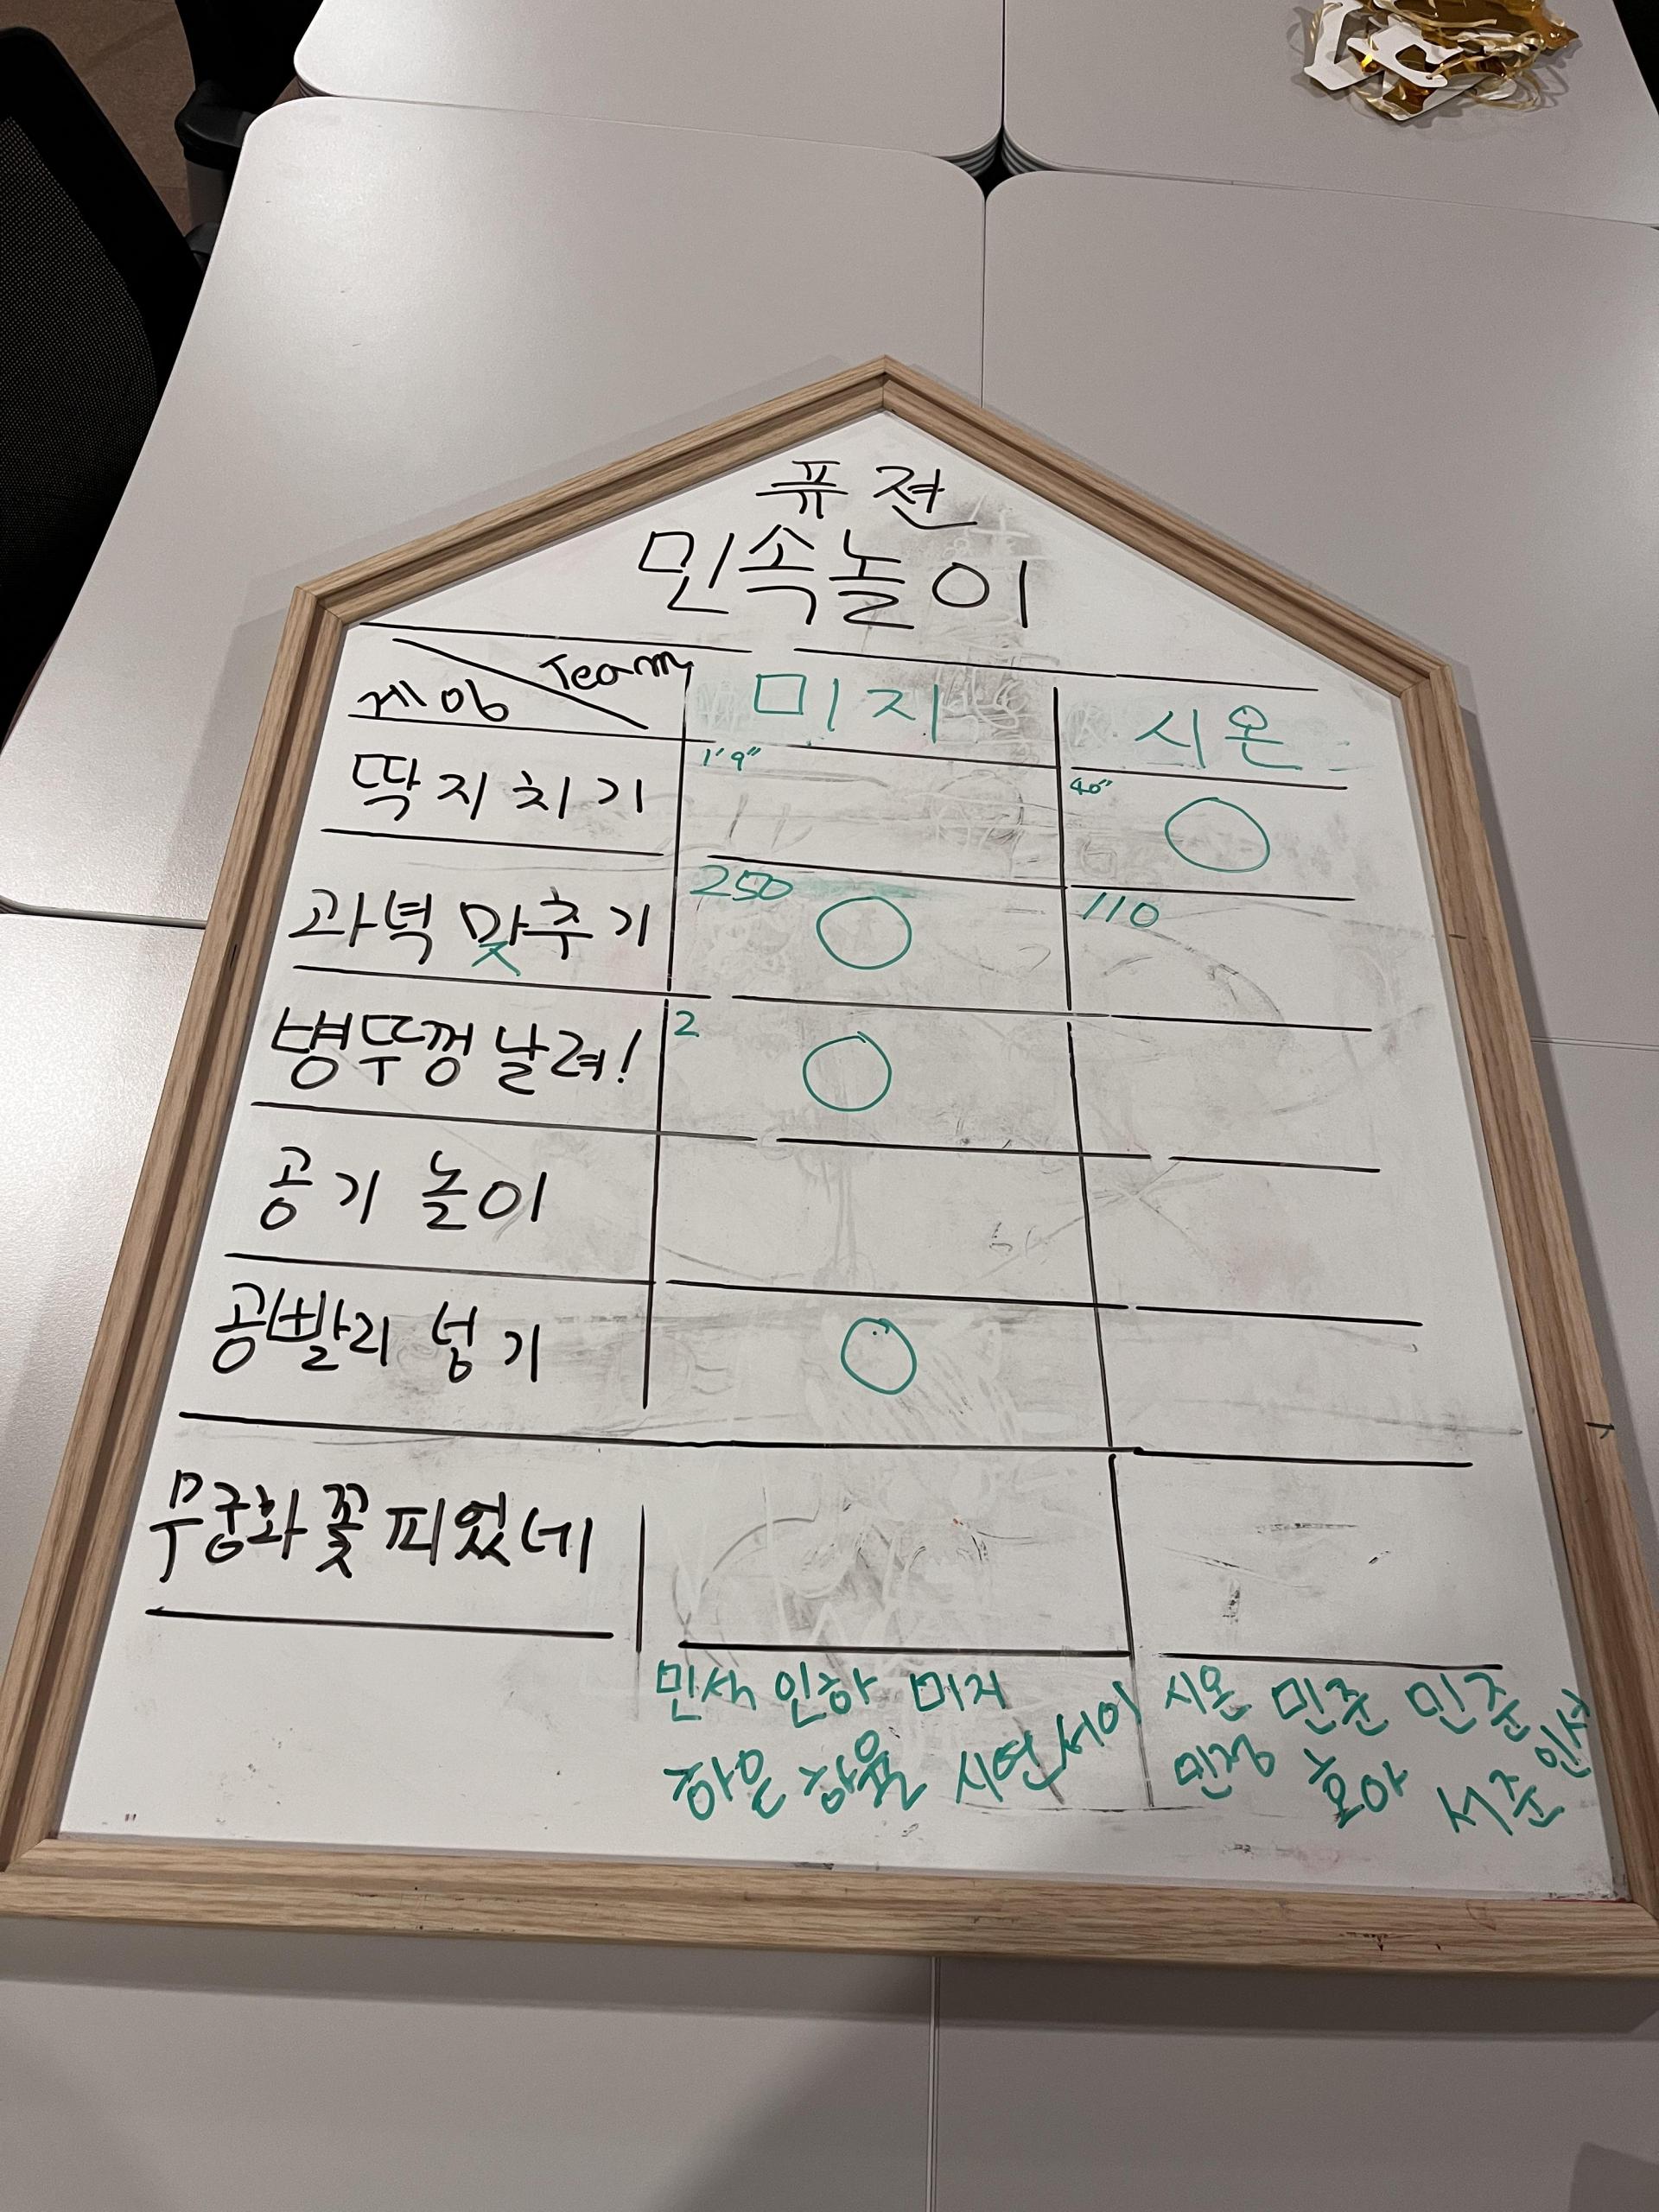 퓨전
민속놀이
Team
게임
미지
시온
딱지치기
1'9"
40"
과녁 맞추기
250
110
병뚜껑 날려!
2
공기 놀이
공빨리 넘기
무궁화 꽃 피었네
민서 인하 미지
하은 하율 시연 세이
시온 민준 민준
민정 호아 서준 인서